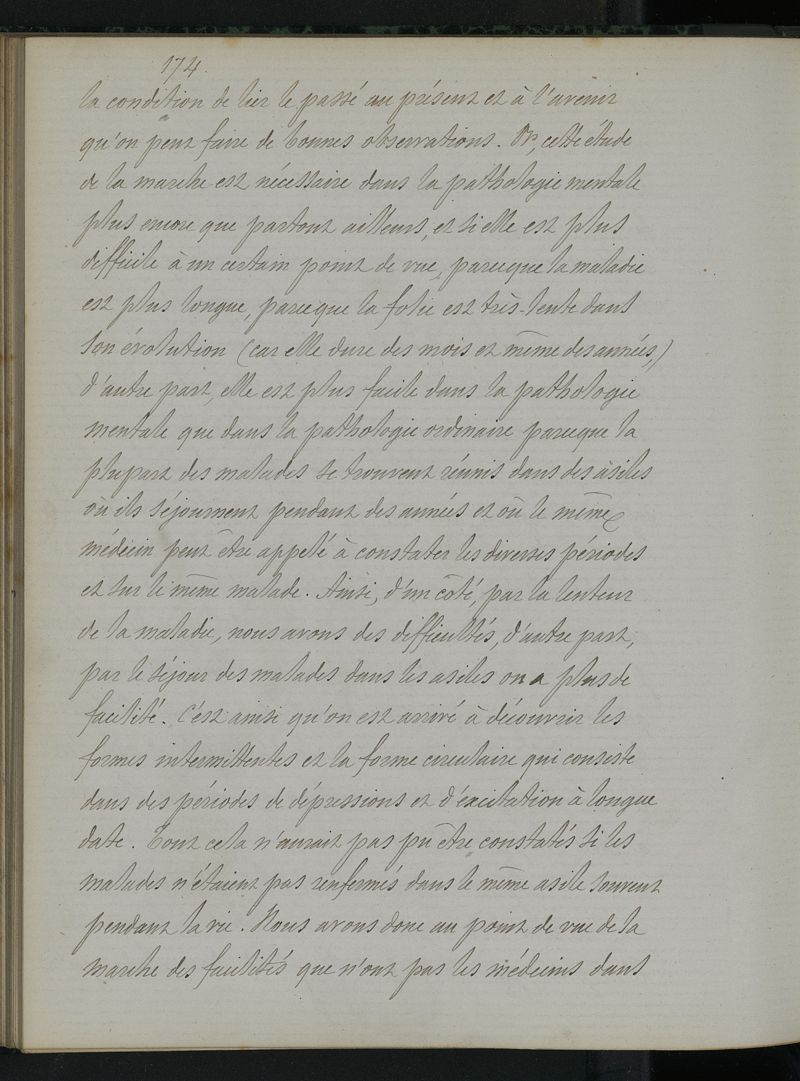 174.
la condition de lier le passé au présent et à l'avenir
qu'on peut faire de bonnes observations. Or, cette étude
de la marche est nécessaire dans la pathologie mentale
plus encore que partout ailleurs, et si elle est plus
difficile à un certain point de vue, parceque la maladie
est plus longue, parceque la folie est très-lente dans
son évolution (car elle dure des mois et même des années,)
d'autre part, elle est plus facile dans la pathologie
mentale que dans la pathologie ordinaire parceque la
plupart des malades se trouvent réunis dans des asiles
où ils séjournent pendant des années et où le même
médecin peut être appelé à constater les diverses périodes
et sur le même malade. Ainsi, d'un côté, par la lenteur
de la maladie, nous avons des difficultés, d'autre part,
par le séjour des malades dans les asiles on a plus de
facilité. C'est ainsi qu'on est arrivé à découvrir les
formes intermittentes et la forme circulaire qui consiste
dans des périodes de dépressions et d'excitation à longue
date. Tout cela n'aurait pas pu être constatés si les
malades n'étaient pas renfermés dans le même asile souvent
pendant la vie. Nous avons donc au point de vue de la
marche des facilités que n'ont pas les médecins dans